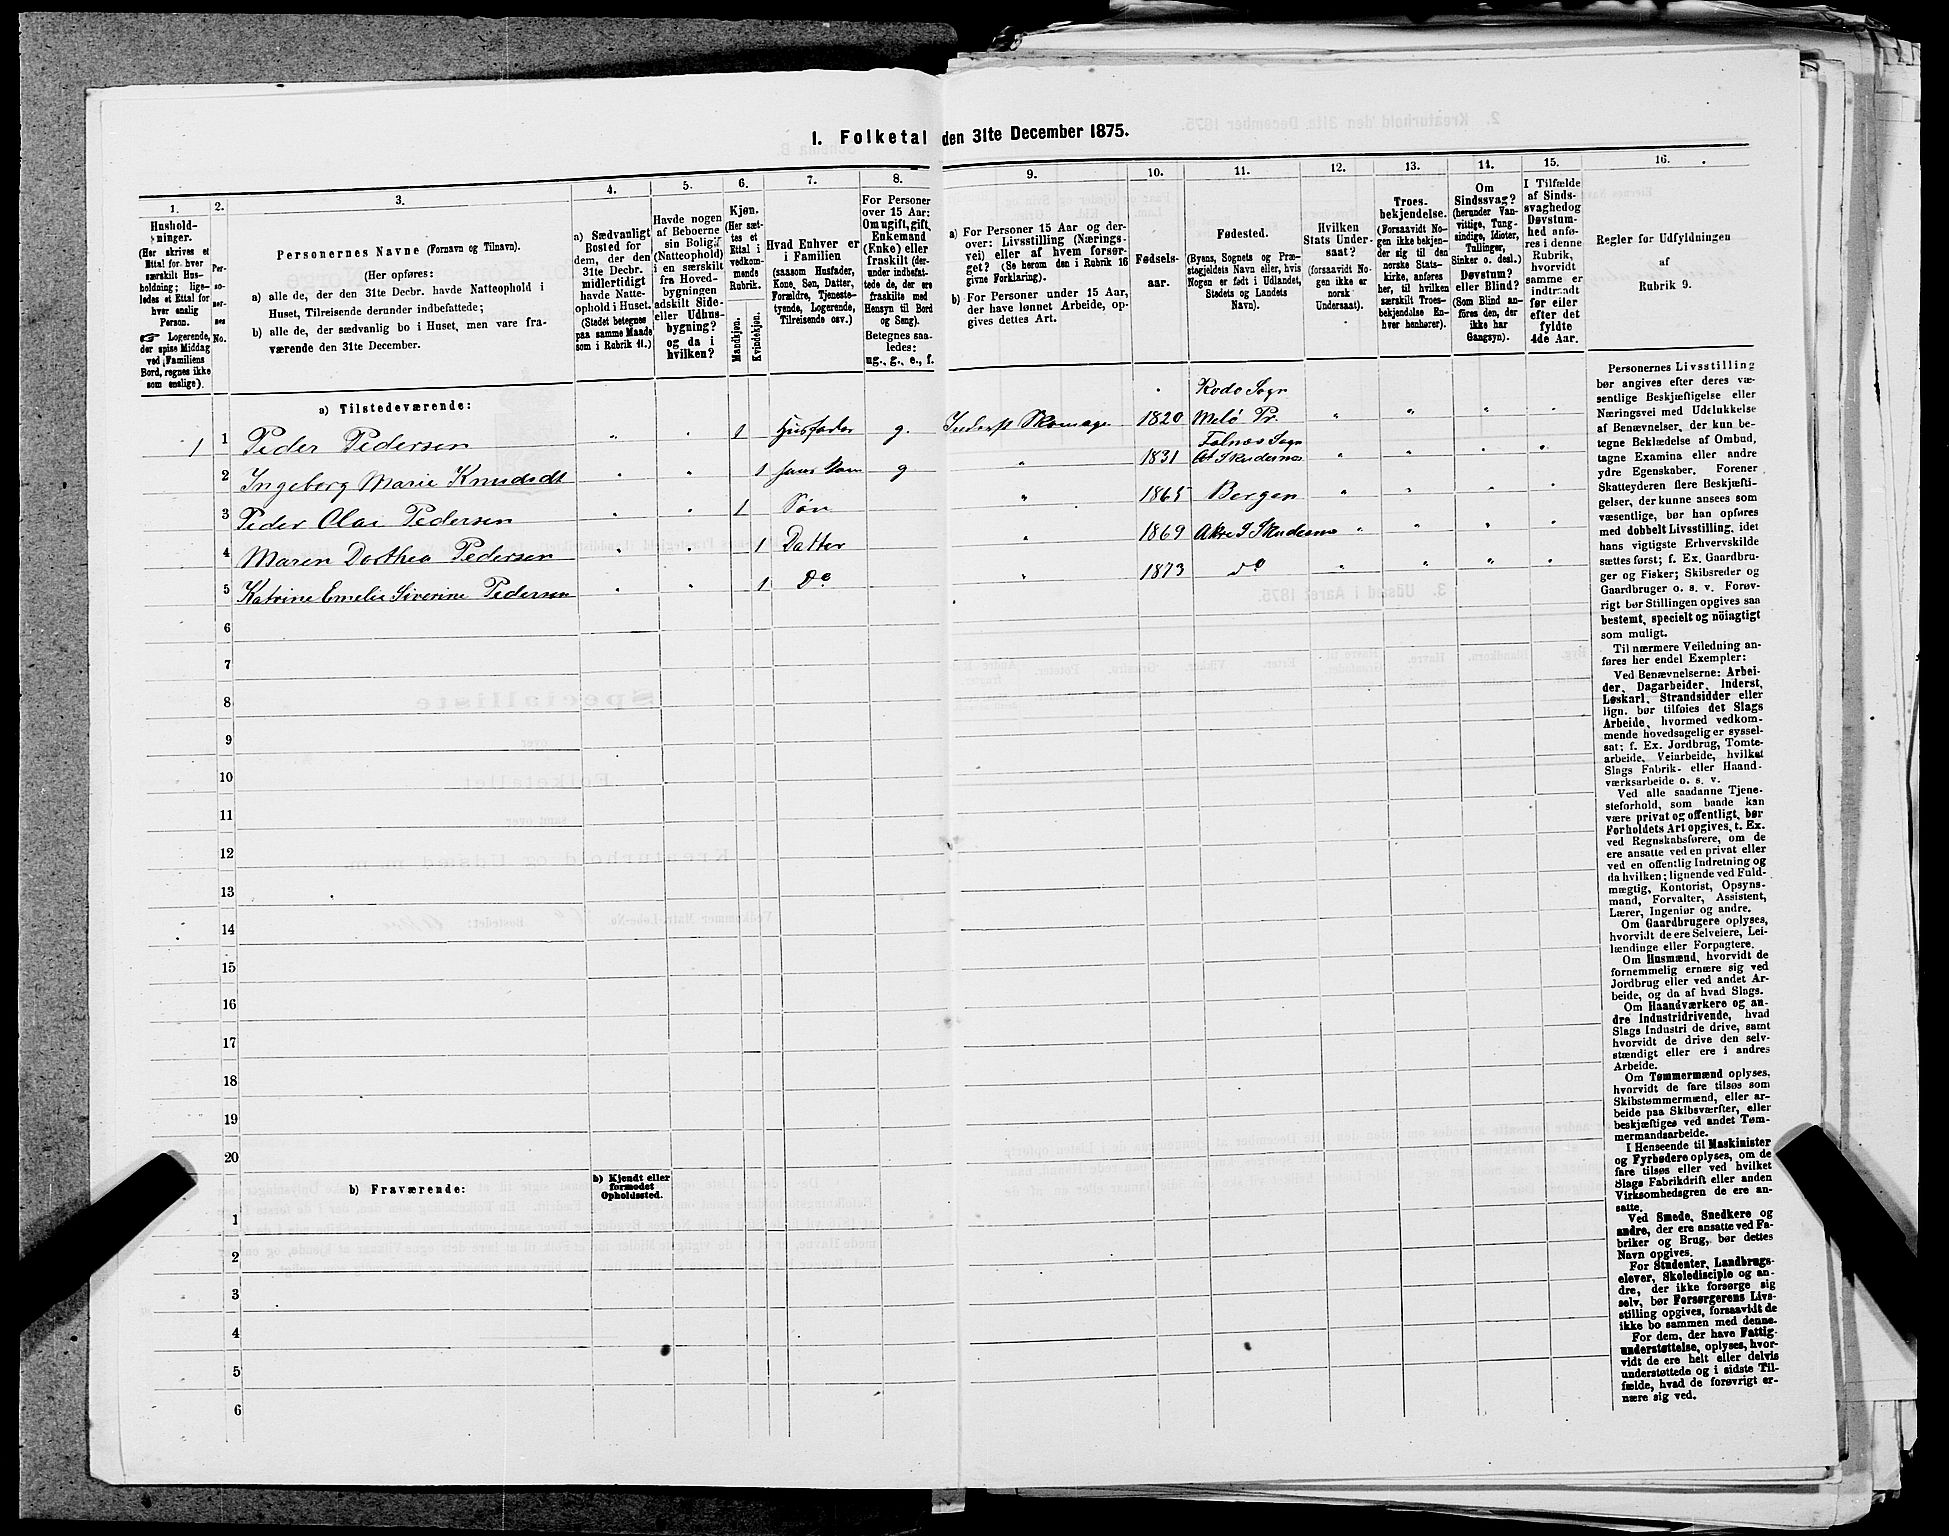 1. Folketal den 31te December 1875.
1.
Hushold-
ninger.
(Her skrives et
Ettal for hver
særskilt Hus-
holdning; lige-
ledes et Ettal for
hver enslig
Person.
☞ Logerende,
der spise Middag
ved Familiens
Bord, regnes ikke
som enslige).
2.
Per-
so-
ner-
nes
No.
3.
Personernes Navne (Fornavn og Tilnavn).
(Her opføres:
a) alle de, der den 31te Decbr. havde Natteophold i
Huset, Tilreisende derunder indbefattede;
b) alle de, der sædvanlig bo i Huset, men vare fra-
værende den 31te December.
4.
a) Sædvanligt
Bosted for
dem, der den
31te Decbr.
midlertidigt
havde Natte-
ophold i Huset.
(Stedet betegnes
paa samme Maade
som i Rubrik 11.)
5.
Havde nogen
af Beboerne
sin Bolig
(Natteophold)
i en særskilt
fra Hoved-
bygningen
adskilt Side-
eller Udhus-
bygning?
og da i
hvilken?
6.
Kjøn.
(Her sæt-
tes et
Ettal i
vedkom-
mende
Rubrik.
Mandkjøn.
Kvindekjøn.
7.
Hvad Enhver er
i Familien
(saasom Husfader,
Kone, Søn, Datter,
Forældre, Tjeneste-
tyende, Logerende,
Tilreisende osv.)
8.
For Personer
over 15 Aar:
Om ugift, gift,
Enkemand
(Enke) eller
fraskilt (der-
under indbefat-
tede de, der ere
fraskilte med
Hensyn til Bord
og Seng).
Betegnes saa-
ledes:
ug., g., e., f.
9.
a) For Personer 15 Aar og der-
over: Livsstilling (Nærings-
vei) eller af hvem forsør-
get? (Se herom den i Rubrik 16
givne Forklaring).
b) For Personer under 15 Aar,
der have lønnet Arbeide, op-
gives dettes Art.
10.
Fødsels-
aar.
11.
Fødested.
(Byens, Sognets og Præ-
stegjeldets Navn eller, hvis
Nogen er født i Udlandet,
Stedets og Landets
Navn).
12.
Hvilken
Stats Under-
saat?
(forsaavidt No-
gen ikke er
norsk
Undersaat).
13.
Troes-
bekjendelse.
(Forsaavidt No-
gen ikke bekjen-
der sig til den
norske Stats-
kirke, anføres
her, til hvilken
særskilt Troes-
bekjendelse En-
hver henhører).
14.
Om
Sindssvag?
(herunder Van-
vittige, Tung-
sindige, Idioter,
Tullinger,
Sinker o. desl.)
Døvstum?
eller Blind?
(Som Blind an-
føres den, der
ikke har
Gangsyn).
15.
I Tilfælde
af Sinds-
svaghed og
Døvstum-
hed anfø-
res i denne
Rubrik,
hvorvidt
samme er
indtraadt
før eller
efter det
fyldte
4de Aar.
16.
Regler for Udfyldningen
af
Rubrik 9.
a) Tilstedeværende:
1 1 Peder Pedersen " " 1 Husfader g. Inderst Skomager 1820 Rødø Sogn Melø Pr. " " " "
2 Ingeborg Marie Knudsdt " " 1 hans Kone g " 1831 Falnæs Sogn at Skudesnæs " " " "
3 Peder Olai Pedersen " " 1 Søn " 1865 Bergen " " " "
4 Maren Dorthea Pedersen " " 1 Datter " 1869 Akre S. Skudesnæs " " " "
5 Katrine Emelie Siverine Pedersen " " 1 Do " 1873 do " " " "
6
7
8
9
10
11
12
13
14
15
16
17
18
19
20
b) Fraværende:
b) Kjendt eller
formodet
Opholdssted.
1
2
3
4
5
6
Personernes Livsstilling
bør angives efter deres væ-
sentlige Beskjæftigelse eller
Næringsvei med Udelukkelse
af Benævnelser, der kun be-
tegne Beklædelse af Ombud,
tagne Examina eller andre
ydre Egenskaber. Forener
Skatteyderen flere Beskjæfti-
gelser, der kunne ansees som
væsentlige, bør han opføres
med dobbelt Livsstilling, idet
hans vigtigste Erhvervskilde
sættes først; f. Ex. Gaardbru-
ger og Fisker; Skibsreder og
Gaardbruger o. s. v. Forøv-
rigt bør Stillingen opgives saa
bestemt, specielt og nöiagtigt
som muligt.
Til nærmere Veiledning an-
føres her endel Exempler:
Ved Benævnelserne: Arbei-
der, Dagarbeider, Inderst,
Løskarl, Strandsidder eller
lign. bør tilføies det Slags
Arbeide, hvormed vedkom-
mende hovedsagelig er syssel-
sat; f. Ex. Jordbrug, Tomte-
arbeide, Veiarbeide, hvilket
Slags Fabrik- eller Haand-
værksarbeide o. s. v.
Ved alle saadanne Tjene-
steforhold, som baade kan
være privat og offentligt, bør
Forholdets Art opgives, t. Ex.
ved Regnskabsførere, om de
ere ansatte ved en privat eller
ved en offentlig Indretning og
da hvilken; lignende ved Fuld-
mægtig, Kontorist, Opsyns-
mand, Forvalter, Assistent,
Lærer, Ingeniør og andre.
Om Gaardbrugere oplyses,
hvorvidt de ere Selveiere, Lei-
lændinge eller Forpagtere.
Om Husmænd, hvorvidt de
fornemmelig ernære sig ved
Jordbrug eller ved andet Ar-
beide, og da af hvad Slags.
Om Haandværkere og an-
dre Industridrivende, hvad
Slags Industri de drive, samt
hvorvidt de drive den selv-
stændigt eller ere i andres
Arbeide.
Om Tømmermænd oplyses,
hvorvidt de fare tilsøs som
Skibstømmermænd, eller ar-
beide paa Skibsværfter, eller
beskjæftiges ved andet Tøm-
mermandsarbeide.
I Henseende til Maskinister
og Fyrbødere oplyses, om de
fare tilsøs eller ved hvilket
Slags Fabrikdrift eller anden
Virksomhedsgren de ere an-
satte.
Ved Smede, Snedkere og
andre, der ere ansatte ved Fa-
briker og Brug, bør dettes
Navn opgives.
For Studenter, Landbrugs-
elever, Skoledisciple og an-
dre, der ikke forsørge sig
selv, bør Forsørgerens Livs-
stilling opgives, forsaavidt de
ikke bo sammen med denne.
For dem, der have Fattig-
understøttelse, oplyses, hvor-
vidt de ere helt eller delvis
understøttede og i sidste Til-
fælde, hvad de forøvrigt er-
nære sig ved.